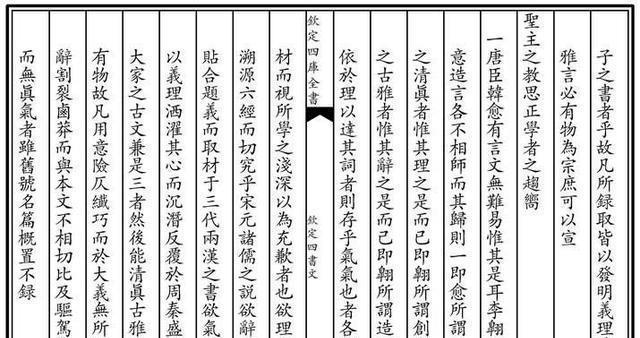 子之書者乎故凡所錄取皆以發明義理
雅言必有物為宗庶可以宣
聖主之教思正學者之趨嚮
一唐臣韓愈有言文無難易惟其是耳李翱
意造言各不相師而其歸則一即愈所謂
之清眞者惟其理之是而已即翱所謂創
之古雅者惟其辭之是而已即翱所謂造
依於理以達其詞者則存乎氣氣也者各
欽定四庫全書
欽定四書文
材而視所學之淺深以為充歉者也欲理
溯源六經而切究乎宋元諸儒之說欲辭
貼合題義而取材于三代兩漢之書欲氣
以義理洒濯其心而沉潛反覆於周秦盛
大家之古文兼是三者然後能清眞古雅
有物故凡用意險仄纖巧而於大義無所
辭割裂鹵莽而與本文不相切比及驅駕
而無眞氣者雖舊號名篇概置不錄